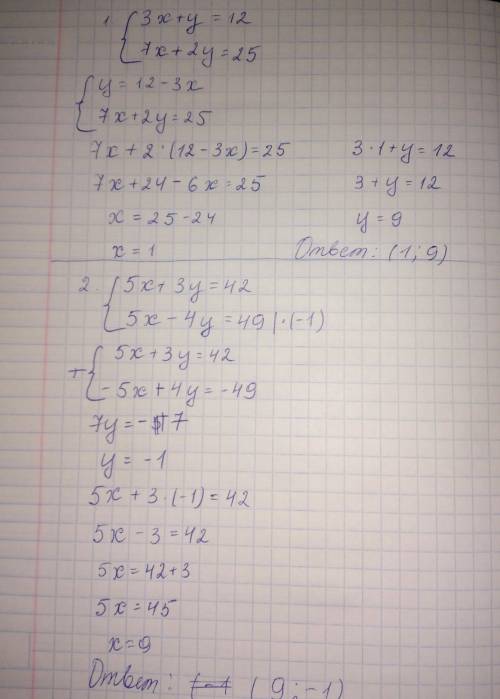 1. { 3x+y=12
7x+2y=25
{ y=12-3x
7x+2y=25
7x+2·(12-3x)=25
7x+24-6x=25
x=25-24
x=1
3·1+y=12
3+y=12
y=9
Ответ: (1; 9)
2. { 5x+3y=42
5x-4y=49 |·(-1)
+ { 5x+3y=42
-5x+4y=-49
7y=-7
y=-1
5x+3·(-1)=42
5x-3=42
5x=42+3
5x=45
x=9
Ответ: (9;-1)